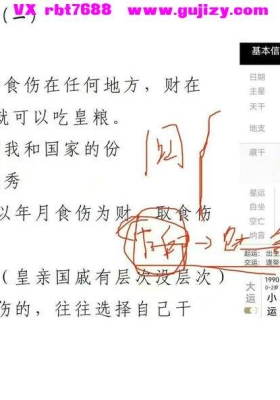 VX rbt7688 www.gujizy.com
(一)
基本信
食伤在任何地方，财在
日期
主星
天干
就可以吃皇粮。
地支
我和国家的份
藏干
秀
星运
自坐
以年月食伤为财，取食伤
空亡
纳音
起运：出生
交运：逢癸
（皇亲国戚有层次没层次）
伤的，往往选择自己干
大运
小运
1990